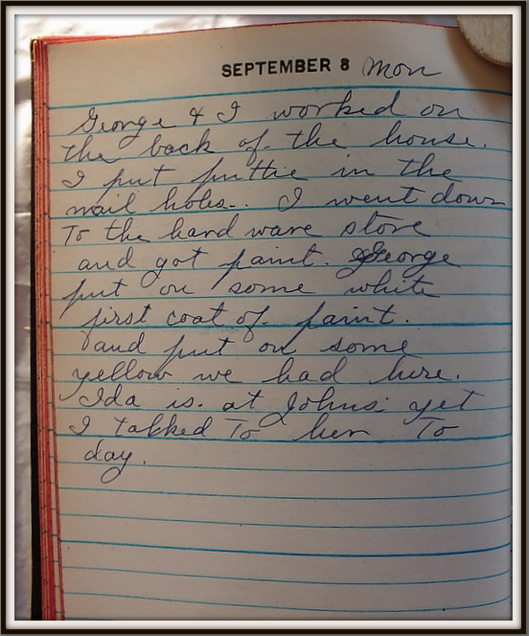 SEPTEMBER 8 Mon
George & I worked on
the back of the house.
I put puttie in the
nail holes.. I went down
To the hard ware store
and got paint. George
put on some white
first coat of paint.
and put on some
yellow we had here.
Ida is. at Johns yet
I talked To her To
day.